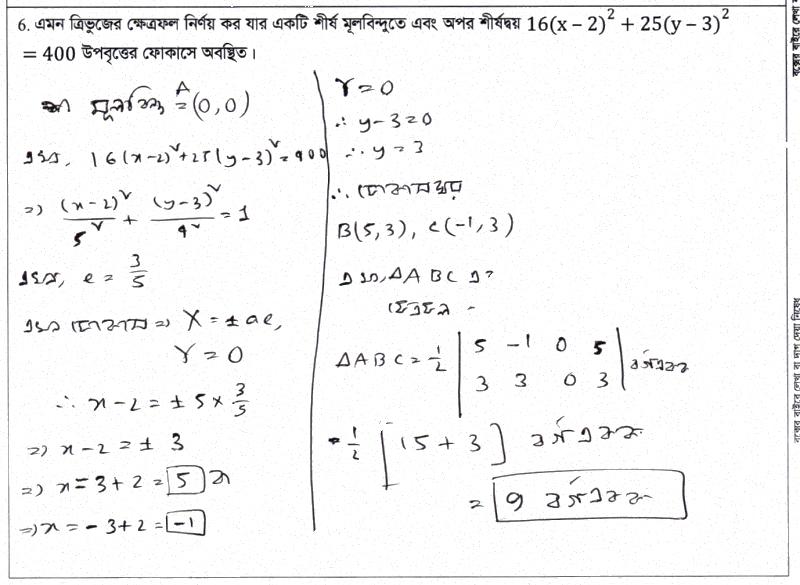 6. এমন ত্রিভুজের ক্ষেত্রফল নির্ণয় কর যার একটি শীর্ষ মূলবিন্দুতে এবং অপর শীর্ষদ্বয় 16(x – 2)² + 25(y – 3)²
= 400 উপবৃত্তের ফোকাসে অবস্থিত।
মূলবিন্দু A = (0,0)
এখন, 16(x-2)²+25(y-3)²=400
=) (x-2)²/5² + (y-3)²/4² = 1
এখন, e = 3/5
এখন ফোকাস => X = ± ae,
Y = 0
∴ x-2 = ± 5 × 3/5
=) x-2 = ± 3
=) x = 3+2 = 5
=) x = -3+2 = -1
Y = 0
∴ y-3=0
∴ y = 3
∴ ফোকাসদ্বয়
B(5,3), C(-1,3)
এখন, ΔABC এর
ক্ষেত্রফল
ΔABC = 1/2 | 5 -1 0 5
3 3 0 3 | বর্গএকক
= 1/2 [15+3] বর্গএকক
= 9 বর্গএকক
বক্সের বাইরে লেখা বা দাগ দেয়া নিষেধ